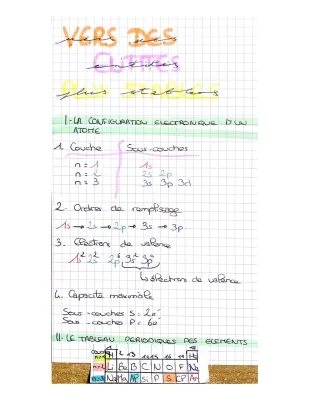 VERS DES
entités
ENTITES
plus stables
I-LA CONFIGURATION ELECTRONIQUE D'UN
ATOME
1. Couche Sous-couches
n = 1 1s
n = 2 2s 2p
n = 3 3s 3p 3d
2. Ordres de remplissage
1s → 2s → 2p → 3s → 3p
3. Electrons de valence
1s² 2s² 2p⁶ 3s² 3p³
↳ électrons de valence
4. Capacité maximale
Sous-couches S : 2e⁻
Sous-couches P : 6e⁻
II-LE TABLEAU PERIODIQUES DES ELEMENTS
1 2 13 14 15 16 17 18
n=1 H He
n=2 Li Be B C N O F Ne
n=3 Na Mg Al Si P S Cl Ar